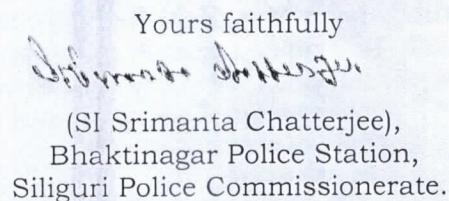 Yours faithfully
Srimanta Chatterjee.
(SI Srimanta Chatterjee),
Bhaktinagar Police Station,
Siliguri Police Commissionerate.